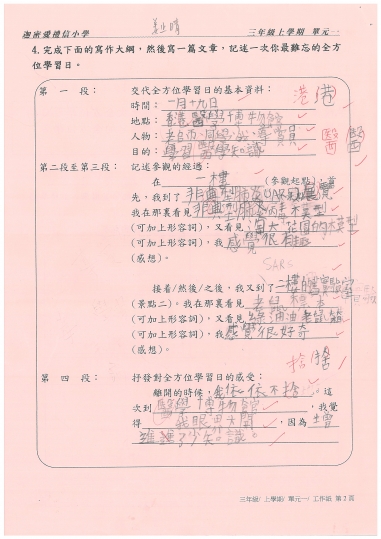 迦密愛禮信小學 三年級上學期 單元一
4.完成下面的寫作大綱，然後寫一篇文章，記述一次你最難忘的全方
位學習日。
第一段： 交代全方位學習日的基本資料： 港
時間：一月十九日
地點：香港醫學博物館
人物：老師、同學、我、導賞員 醫
目的：學習醫學知識
第二段至第三段： 記述參觀的經過：
在 一樓 (參觀起點)，首
先，我到了非典型肺炎
我在那裏看見非典型肺炎 模型
(可加上形容詞)，又看見 淘大花園的模型
(可加上形容詞)，我 感覺很有趣
(感想)。
SARS
接着/然後/之後，我又到了一樓的實驗室
(景點二)。我在那裏看見 老鼠標本
(可加上形容詞)，又看見 綠油油
(可加上形容詞)，我 感覺很好奇
(感想)。
捨
第四段： 抒發對全方位學習日的感受：
離開的時候，我依依不捨。這
次到 醫學博物館，我覺
得 我眼界大開，因為 增
進了 知識。
三年級/上學期/單元一/工作紙 第2頁